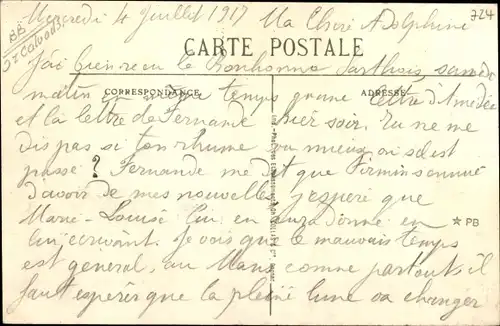 Mercredi 4 Juillet 1917 Ma Chère Adolphine
724
BB
St Calvados
CARTE POSTALE
J'ai bien reçu le Bonhomme Sarthois, samedi
matin en même temps qu'une lettre d'Amédée
CORRESPONDANCE
ADRESSE
et la lettre de Fernande hier soir. Tu ne me
dis pas si ton rhume va mieux, ou s'il est
passé ? Fernande me dit que Firmin s'ennuie
d'avoir de mes nouvelles j'espère que
Marie-Louise lui en aura donné en
★ PB
lui écrivant. Je vois que le mauvais temps
est general, au Mans comme partout, il
faut espérer que la pleine lune va changer